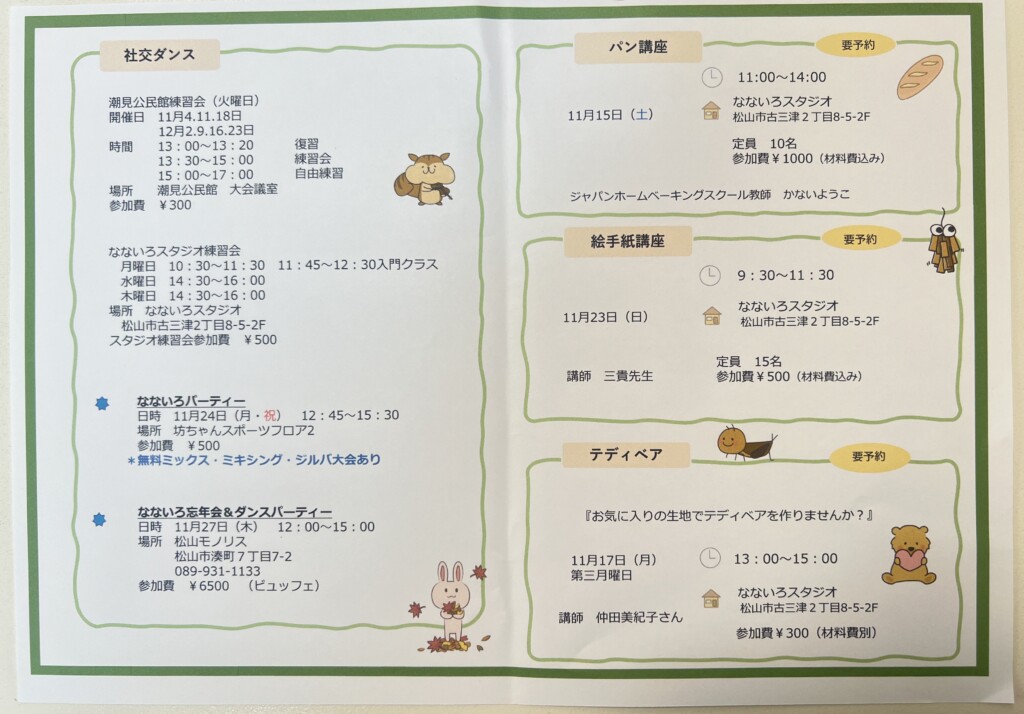 社交ダンス
潮見公民館練習会（火曜日）
開催日　11月4.11.18日
12月2.9.16.23日
時間　13：00～13：20　復習
13：30～15：00　練習会
15：00～17：00　自由練習
場所　潮見公民館　大会議室
参加費　￥300
なないろスタジオ練習会
月曜日　10：30～11：30　11：45～12：30入門クラス
水曜日　14：30～16：00
木曜日　14：30～16：00
場所　なないろスタジオ
松山市古三津2丁目8-5-2F
スタジオ練習会参加費　￥500
なないろパーティー
日時　11月24日（月・祝）　12：45～15：30
場所　坊ちゃんスポーツフロア2
参加費　￥500
＊無料ミックス・ミキシング・ジルバ大会あり
なないろ忘年会＆ダンスパーティー
日時　11月27日（木）　12：00～15：00
場所　松山モノリス
松山市湊町７丁目7-2
089-931-1133
参加費　￥6500　（ビュッフェ）
パン講座
要予約
11:00～14:00
11月15日（土）
なないろスタジオ
松山市古三津２丁目8-5-2F
定員　10名
参加費￥1000（材料費込み）
ジャパンホームベーキングスクール教師　かないようこ
絵手紙講座
要予約
9：30～11：30
なないろスタジオ
松山市古三津２丁目8-5-2F
11月23日（日）
定員　15名
参加費￥500（材料費込み）
講師　三貴先生
テディベア
要予約
『お気に入りの生地でテディベアを作りませんか？』
11月17日（月）
第三月曜日
13：00～15：00
なないろスタジオ
松山市古三津２丁目8-5-2F
講師　仲田美紀子さん
参加費￥300（材料費別）